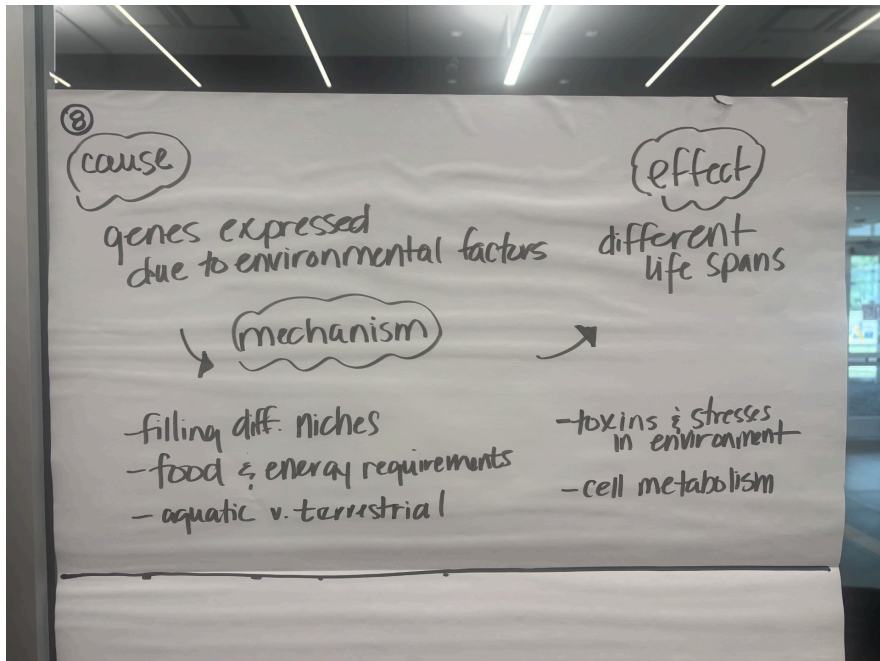 8
cause
effect
genes expressed
due to environmental factors
different
life spans
mechanism
-filling diff. niches
-food & energy requirements
- aquatic v. terrestrial
-toxins & stresses
in environment
-cell metabolism